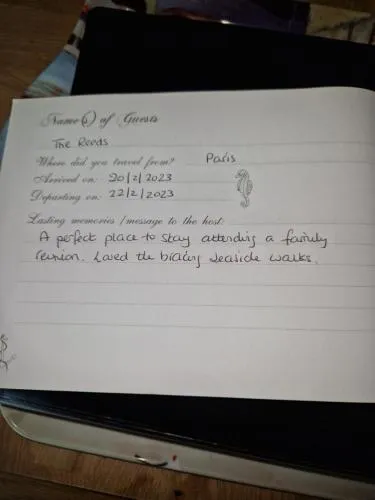 Name(s) of Guests
The Reeds
Where did you travel from? Paris
Arrived on: 20/2/2023
Departing on: 22/2/2023
Lasting memories / message to the host:
A perfect place to stay attending a family
reunion. Loved the bracing seaside walks.